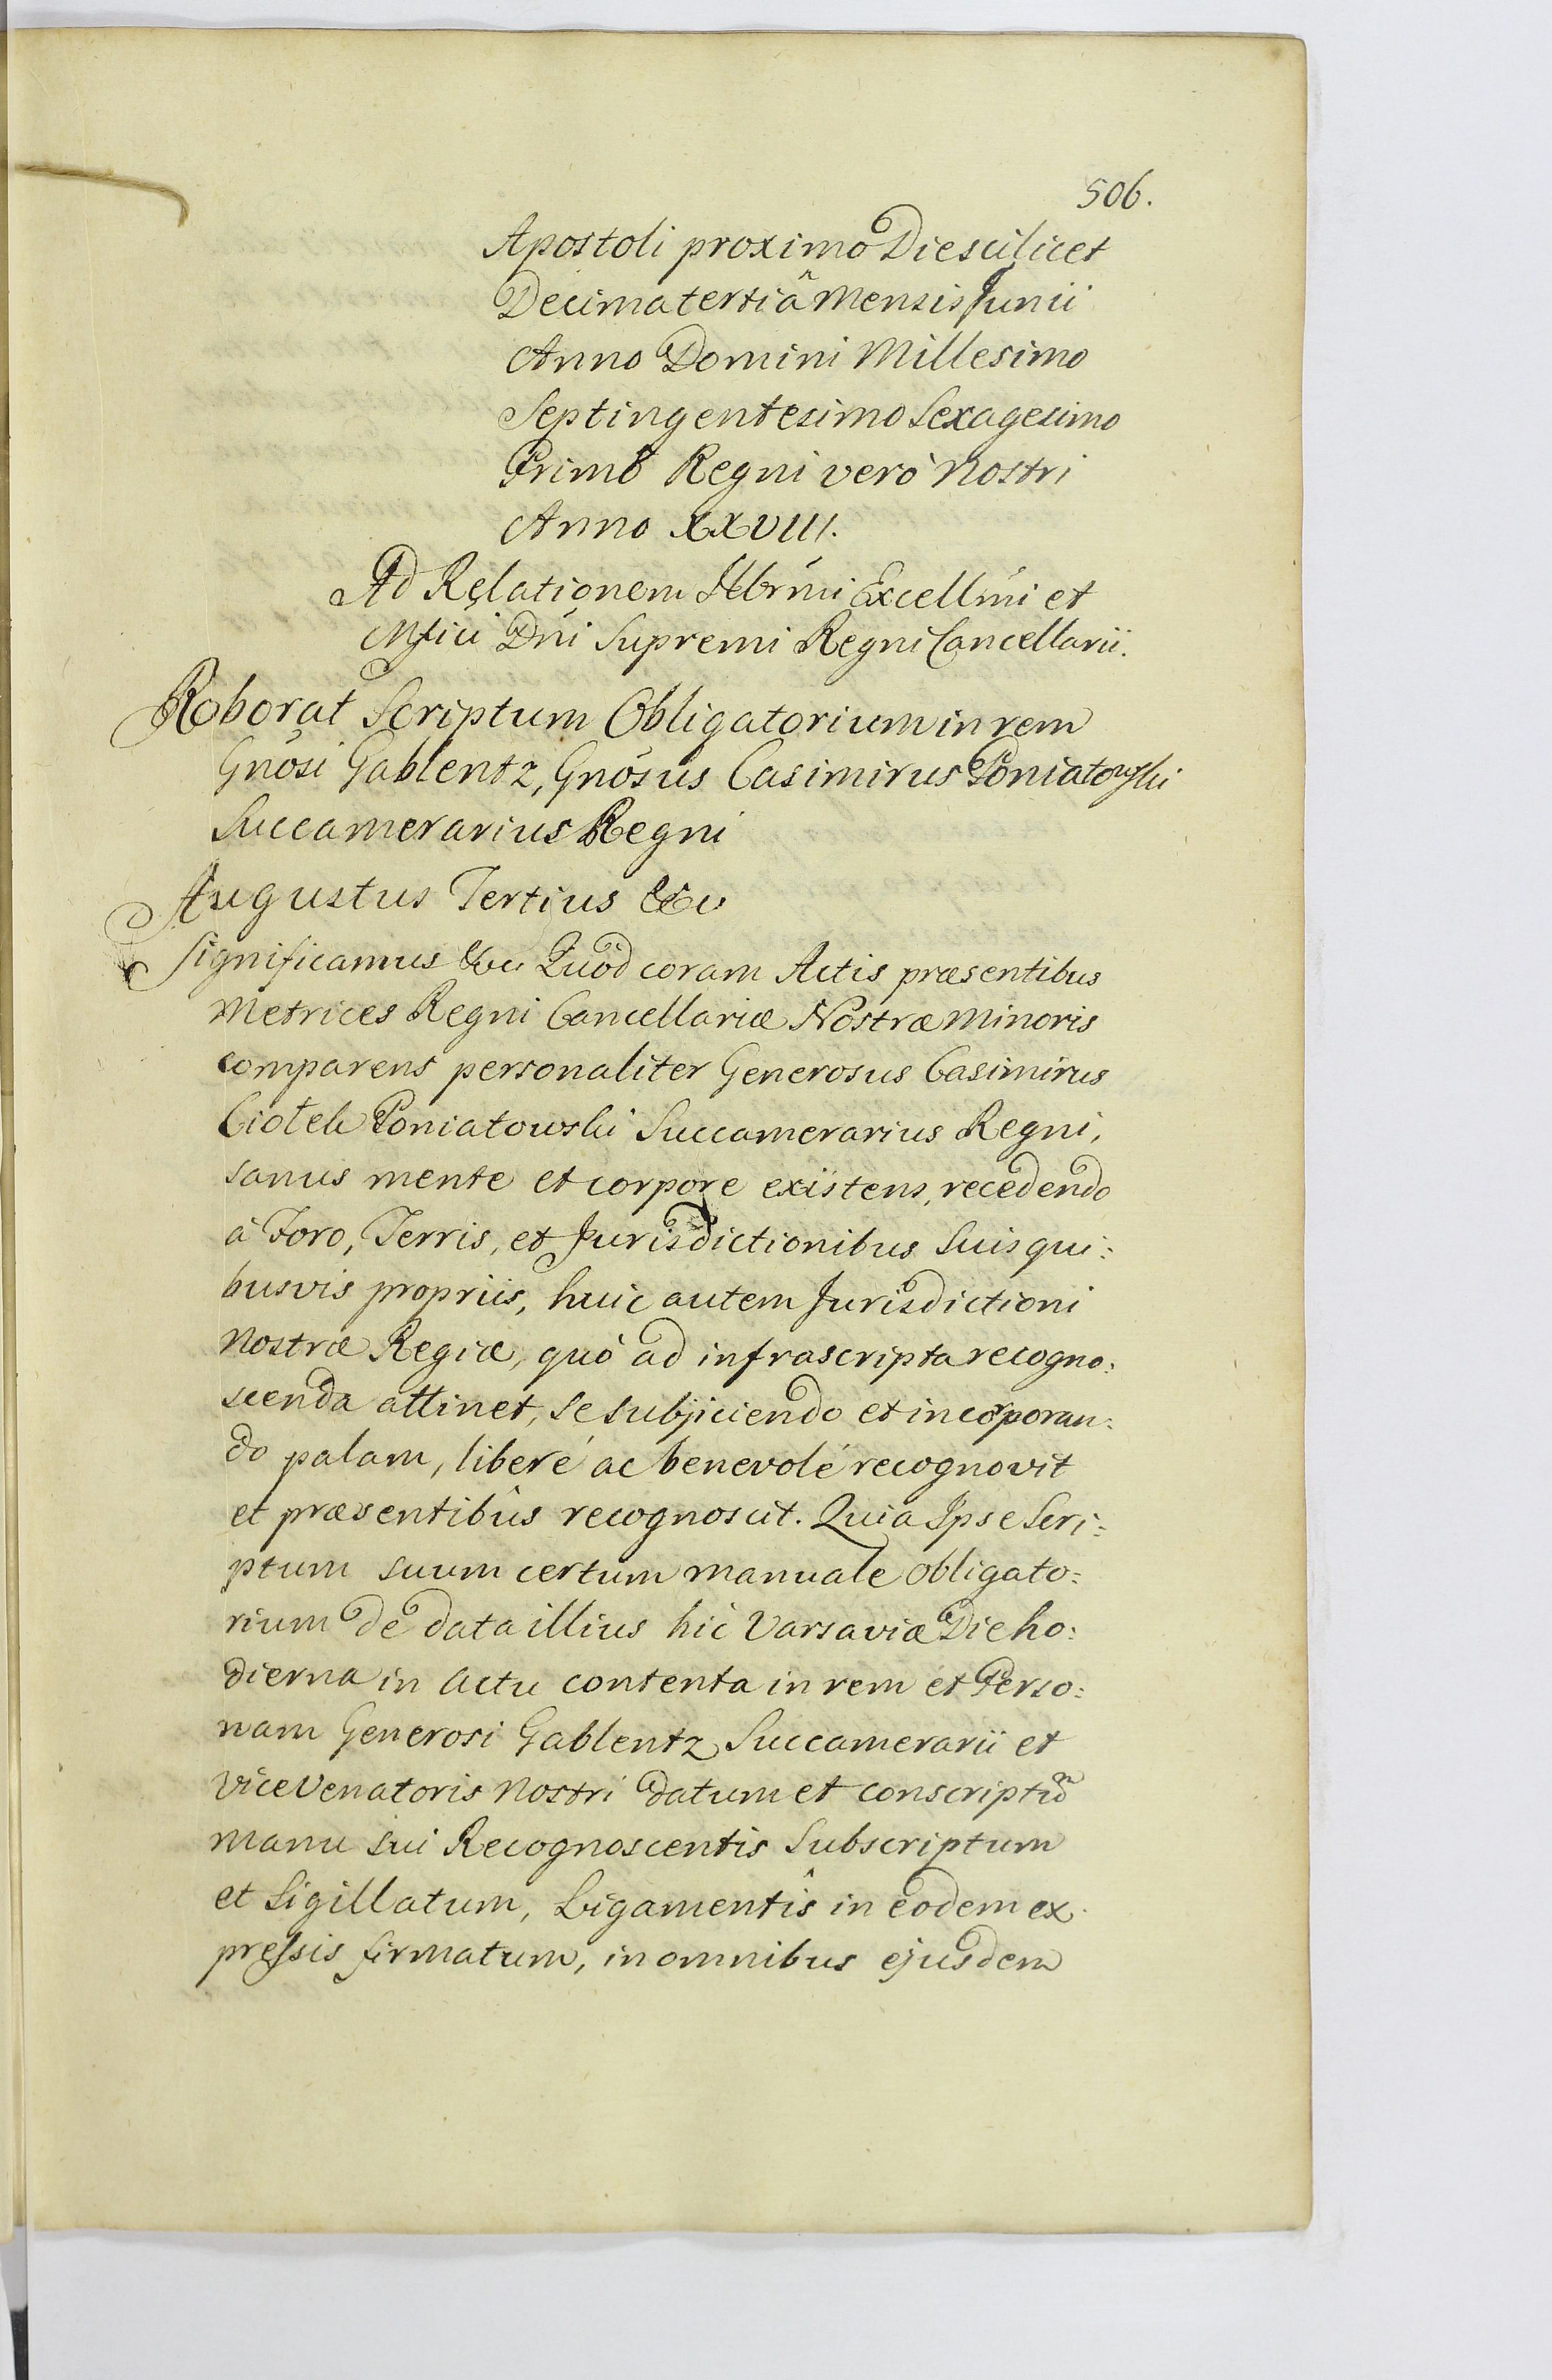 506.
Apostoli proximo Die scilicet
Decima tertiâ Mensis Junii
Anno Domini Millesimo
Septingentesimo Sexagesimo
Primo Regni verò Nostri
Anno XXVIII.
Ad Relationem Illrmi Excellmi et
Mfici Dni Supremi Regni Cancellarii.
Roborat Scriptum Obligatorium in rem
Gnosi Gablentz, Gnosus Casimirus Poniatowski
Succamerarius Regni
Augustus Tertius &c
Significamus &c Quòd coram Actis præsentibus
Metrices Regni Cancellariæ Nostræ Minoris
comparens personaliter Generosus Casimirus
Ciołek Poniatowski Succamerarius Regni,
sanus mente et corpore existens, recedendo
à Foro, Terris, et Jurisdictionibus Suis qui:
busvis propriis, huic autem Jurisdictioni
Nostræ Regiæ, quò ad infrascripta recogno:
scenda attinet, se subjiciendo et incorporan:
do palam, liberé ac benevolé recognovit
et præsentibûs recognoscit. Quia Ipse Scri:
ptum suum certum manuale obligato:
rium de data illius hic Varsaviæ Die ho:
dierna in Actu contenta in rem et Perso:
nam Generosi Gablentz Succamerarii et
Vice Venatoris Nostri datum et conscriptum
manu sui Recognoscentis Subscriptum
et Sigillatum, Ligamentîs in eodem ex.
pressis firmatum, in omnibus ejusdem